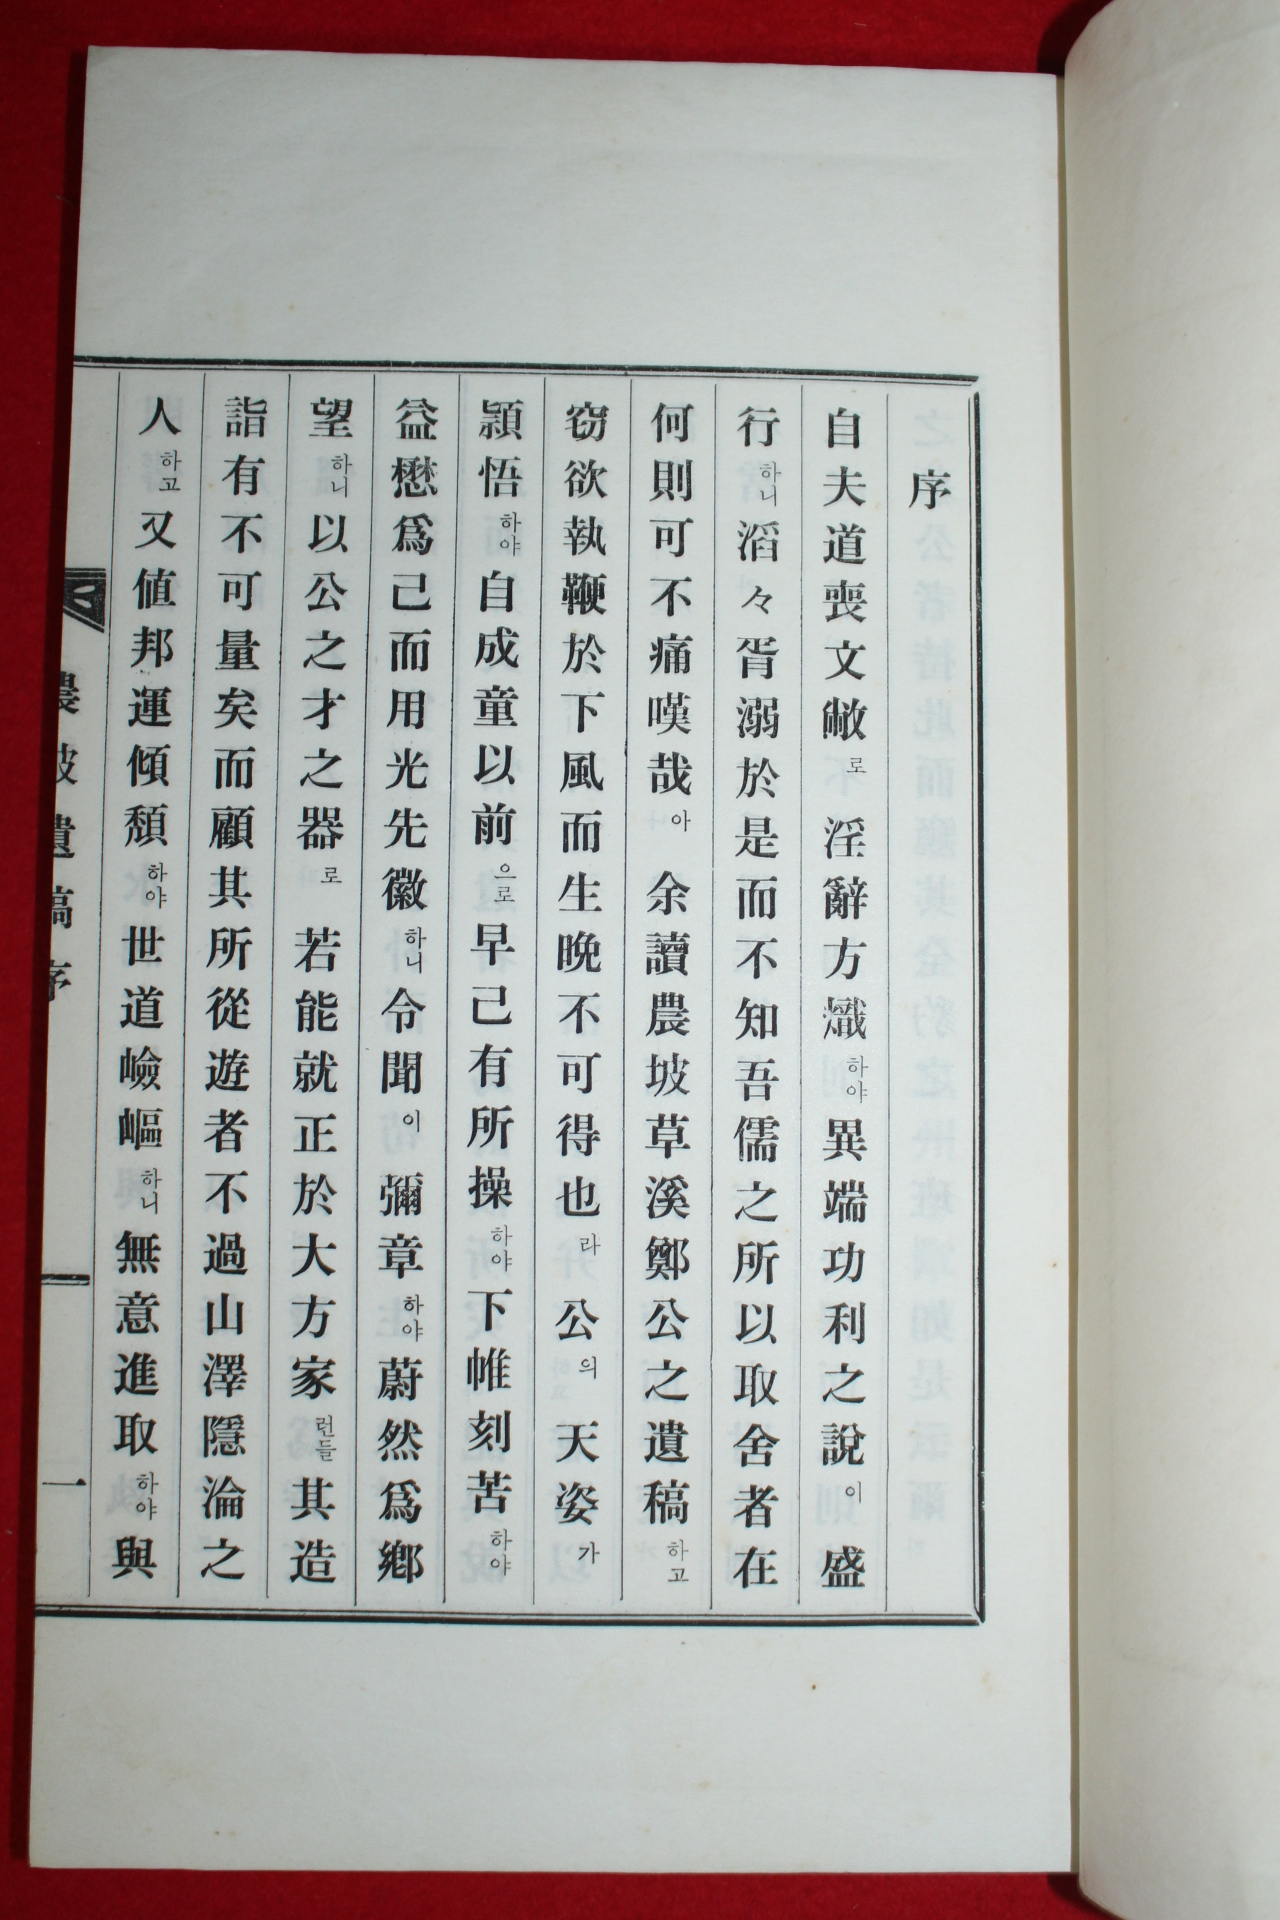 序
自夫道喪文敝로淫辭方熾하야異端功利之說이盛
行하니滔々胥溺於是而不知吾儒之所以取舍者在
何則可不痛嘆哉아余讀農坡草溪鄭公之遺稿하고
窃欲執鞭於下風而生晩不可得也라公의天姿가
穎悟하야自成童以前으로早己有所操하야下帷刻苦하야
益懋爲己而用光先徽하니令聞이彌章하야蔚然爲鄕
望하니以公之才之器로若能就正於大方家런들其造
詣有不可量矣而顧其所從遊者不過山澤隱淪之
人하고又値邦運傾頹하야世道嶮嶇하니無意進取하야與
農坡遺稿序
一